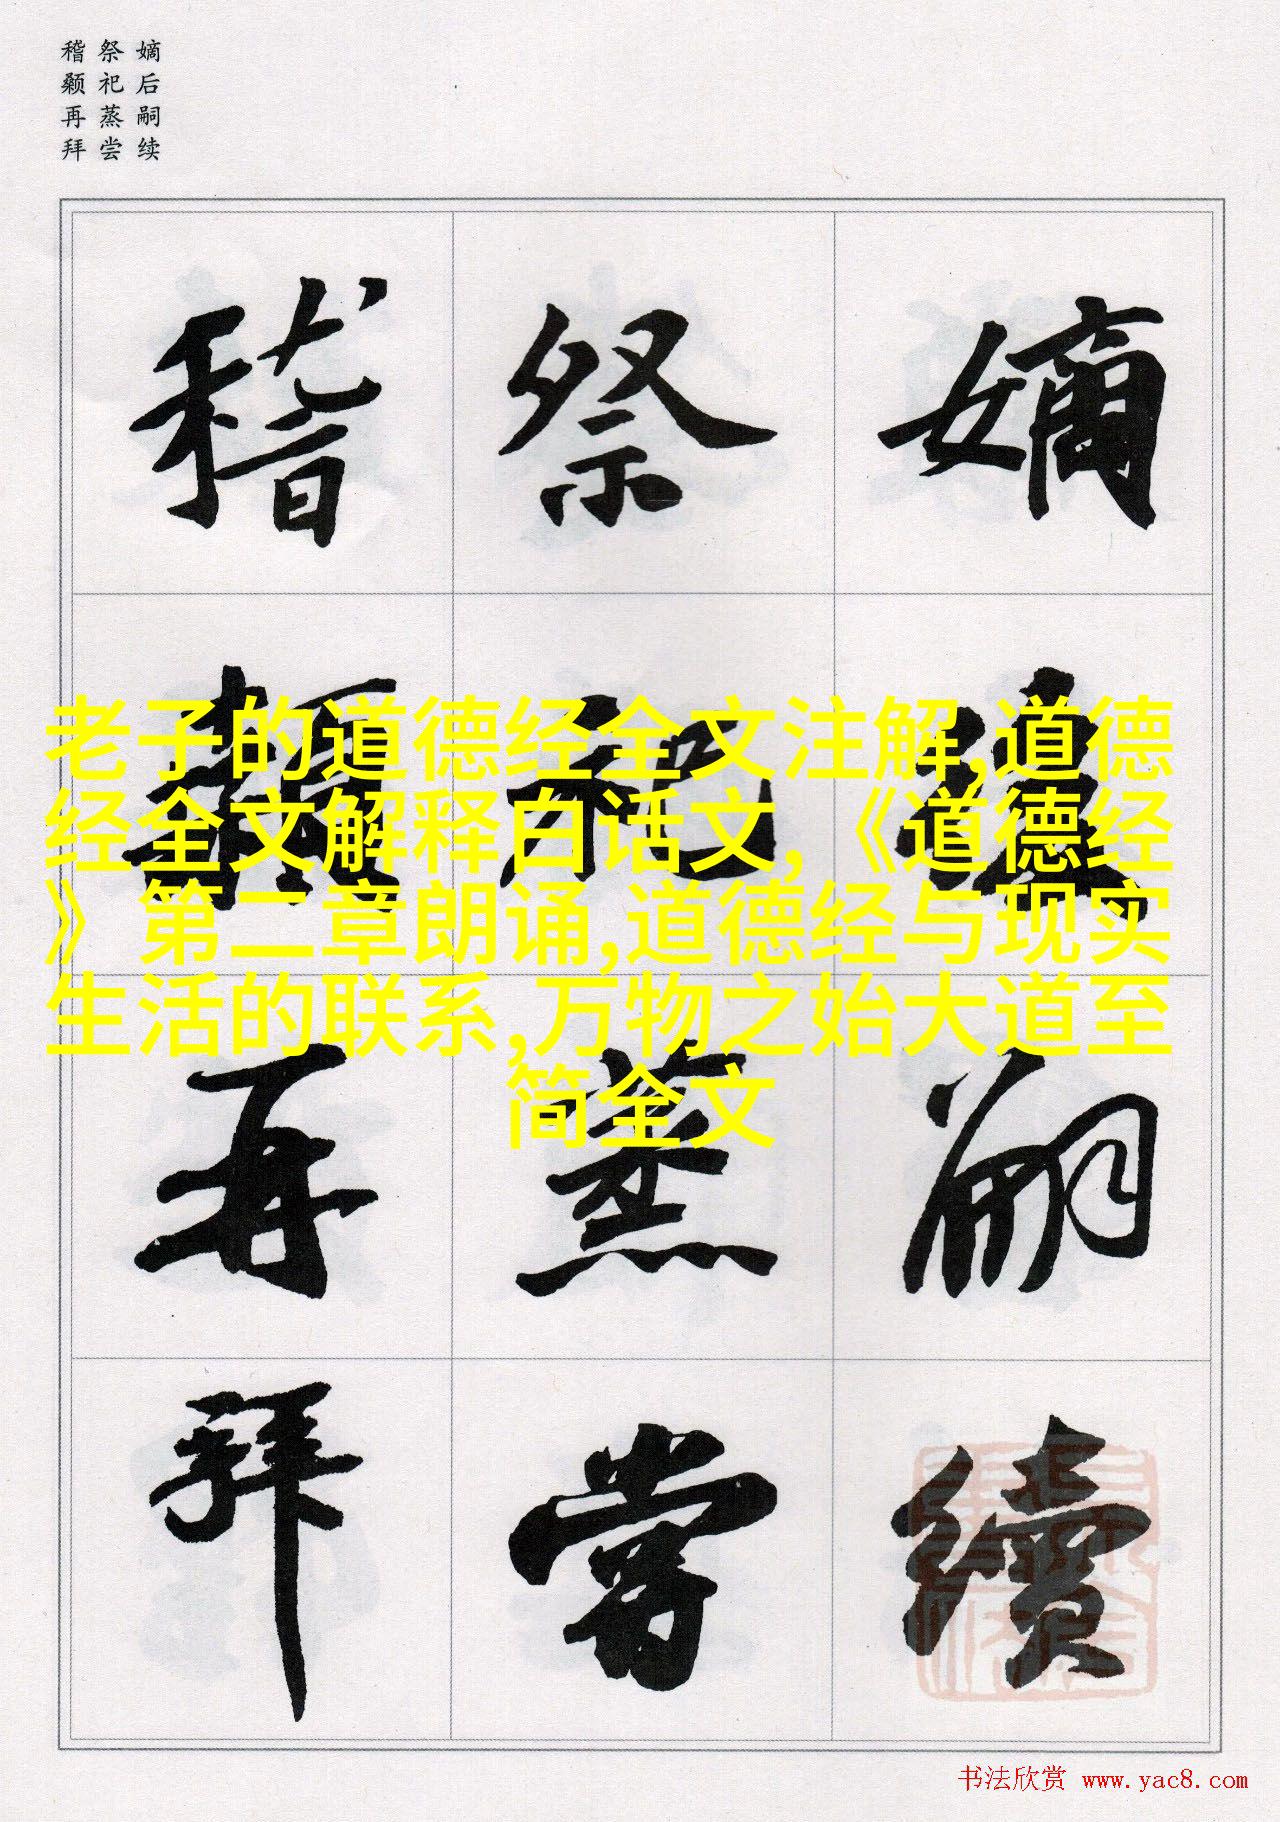 嫡后嗣续
祭祀蒸尝
稽颡再拜
嫡後嗣續
祭祀蒸嘗
稽顙再拜
老子的道德经全文注解,道德
经全文解释白话文,《道德经
》第二章朗诵,道德经与现实
生活的联系,万物之始大道至
简全文
书法欣赏 www.yac8.com